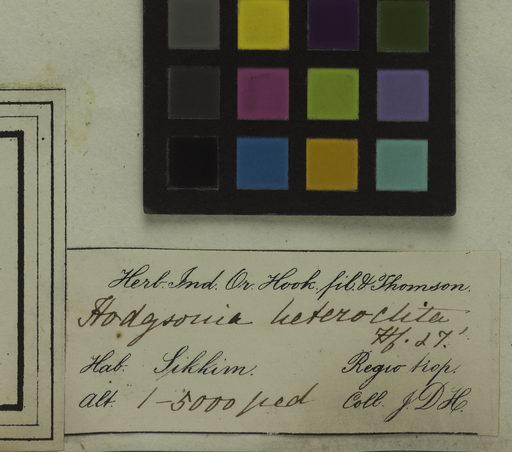 Herb. Ind. Or. Hook. fil. & Thomson.
Hodgsonia heteroclita
Hf. & T.
Hab. Sikkim. Regio trop.
Alt. 1-5000 ped Coll. J.D.H.